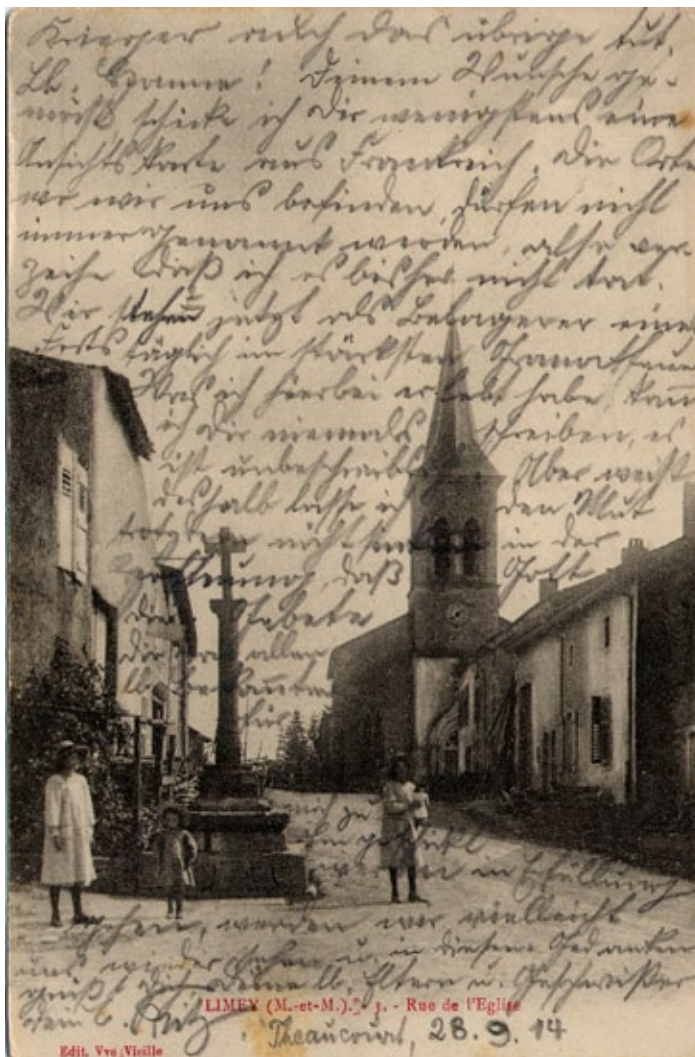 Krieger auch das übrige tut.
Lb. Hanna! Deinem Wunsche ge-
mäß, schicke ich Dir wenigstens eine
Ansichtskarte aus Frankreich. Die Orte
wo wir uns befinden, dürfen nicht
immer genannt werden, also ver-
zeihe daß ich es bisher nicht tat.
Wir stehen jetzt als Belagerer eines
Forts täglich im stärksten Granatfeuer
Was ich hierbei erlebt habe, kann
ich Dir niemals schreiben, es
ist unbeschreibl. Aber
deshalb lasse ich den Mut
trotzdem nicht sinken in der
Hoffnung, daß Gott
die Gebete
aller
lb. Bekannten
für
mich zu
in Erfüllung
gehen, werden wir vielleicht
uns wieder sehen u. in diesem Gedanken
grüßt Dich, Deine lb. Eltern u. Geschwister
dein Fritz.
LIMEY (M.-et-M.). 3. - Rue de l'Eglise
Thiaucourt, 28.9.14
Edit. Vve Vieille